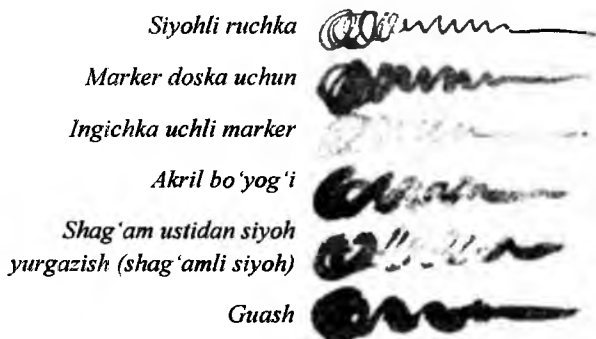 Siyohli ruchka
Marker doska uchun
Ingichka uchli marker
Akril bo‘yog‘i
Shag‘am ustidan siyoh
yurgazish (shag‘amli siyoh)
Guash